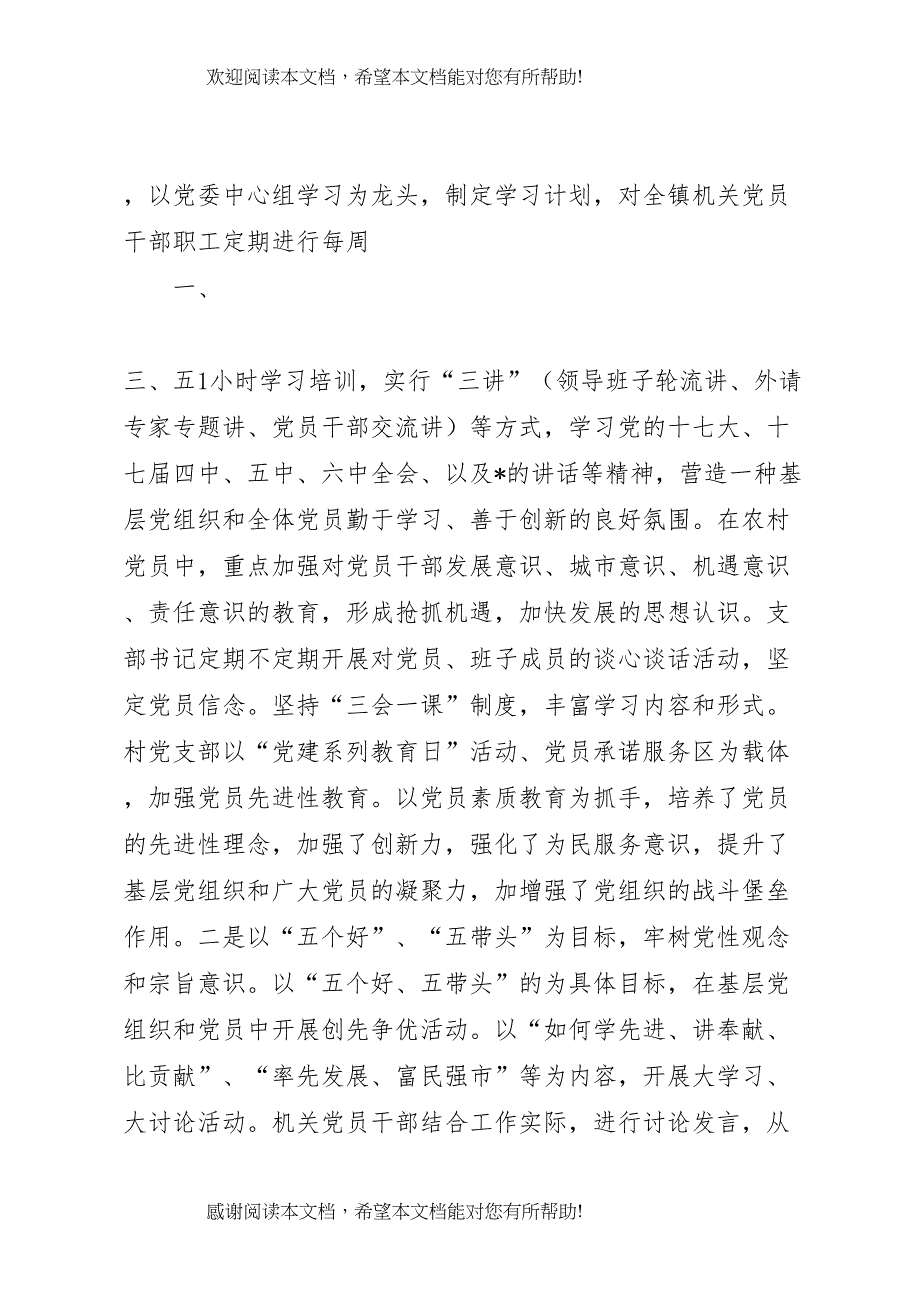 欢迎阅读本文档，希望本文档能对您有所帮助!
，以党委中心组学习为龙头，制定学习计划，对全镇机关党员
干部职工定期进行每周
一、
三、五1小时学习培训，实行“三讲”（领导班子轮流讲、外请
专家专题讲、党员干部交流讲）等方式，学习党的十七大、十
七届四中、五中、六中全会、以及*的讲话等精神，营造一种基
层党组织和全体党员勤于学习、善于创新的良好氛围。在农村
党员中，重点加强对党员干部发展意识、城市意识、机遇意识
、责任意识的教育，形成抢抓机遇，加快发展的思想认识。支
部书记定期不定期开展对党员、班子成员的谈心谈话活动，坚
定党员信念。坚持“三会一课”制度，丰富学习内容和形式。
村党支部以“党建系列教育日”活动、党员承诺服务区为载体
，加强党员先进性教育。以党员素质教育为抓手，培养了党员
的先进性理念，加强了创新力，强化了为民服务意识，提升了
基层党组织和广大党员的凝聚力，加增强了党组织的战斗堡垒
作用。二是以“五个好”、“五带头”为目标，牢树党性观念
和宗旨意识。以“五个好、五带头”的为具体目标，在基层党
组织和党员中开展创先争优活动。以“如何学先进、讲奉献、
比贡献”、“率先发展、富民强市”等为内容，开展大学习、
大讨论活动。机关党员干部结合工作实际，进行讨论发言，从
感谢阅读本文档，希望本文档能对您有所帮助!